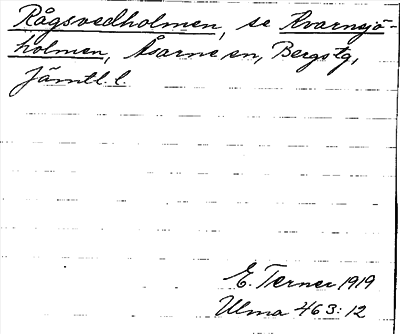 Rågsvedholmen, se Kvarnsjö-
holmen, Åsarne sn, Bergs tg,
Jämtl. l.
E. Terner 1919
Ulma 463:12